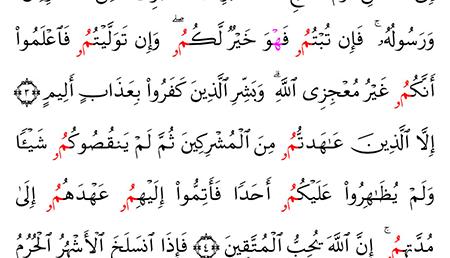 وَرَسُولُهُۥۚ فَإِن تُبْتُمُۥ فَهْوَ خَيْرٌ لَّكُمُۥۖ وَإِن تَوَلَّيْتُمُۥ فَٱعْلَمُوٓا۟
أَنَّكُمُۥ غَيْرُ مُعْجِزِى ٱللَّهِۗ وَبَشِّرِ ٱلَّذِينَ كَفَرُوا۟ بِعَذَابٍ أَلِيمٍ ﴿٣﴾
إِلَّا ٱلَّذِينَ عَٰهَدتُّمُۥ مِنَ ٱلْمُشْرِكِينَ ثُمَّ لَمْ يَنقُصُوكُمُۥ شَيْـًٔا
وَلَمْ يُظَٰهِرُوا۟ عَلَيْكُمُۥ أَحَدًا فَأَتِمُّوٓا۟ إِلَيْهِمُۥ عَهْدَهُمُۥ إِلَىٰ
مُدَّتِهِمُۥۚ إِنَّ ٱللَّهَ يُحِبُّ ٱلْمُتَّقِينَ ﴿٤﴾ فَإِذَا ٱنسَلَخَ ٱلْأَشْهُرُ ٱلْحُرُمُ